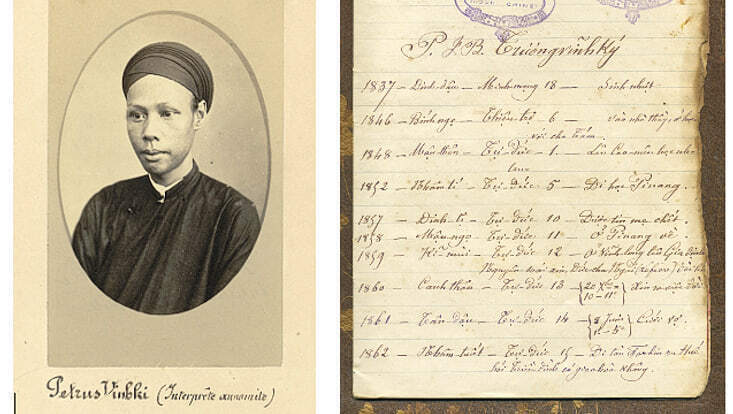 Petrus Vinhki (Interprète annamite)
P. J. B. Trương vĩnh Ký
1837 – Đinh dậu – Minh mạng 18 – Sinh nhứt
1846 – Bính ngọ – Thiệu trị 6 – vào nhà thầy, ở học
với cha Tám.
1848 – Mậu thân – Tự đức – 1 – Lên Cao-mên học
1852 – Nhâm tí – Tự đức 5 – Đi học Pinang.
1857 – Đinh tị – Tự đức 10 – Được tin mẹ chết.
1858 – Mậu ngọ – Tự đức 11 – Ở Pinang về
1859 – Kỉ mùi – Tự đức 12 – Ở Vĩnh-long lên Gia định
1860 – Canh thân – Tự đức 13 – 10–11
1861 – Tân dậu – Tự đức 14 – Cưới vợ.
1862 – Nhâm tuất – Tự đức 15 – Đi ra Huế